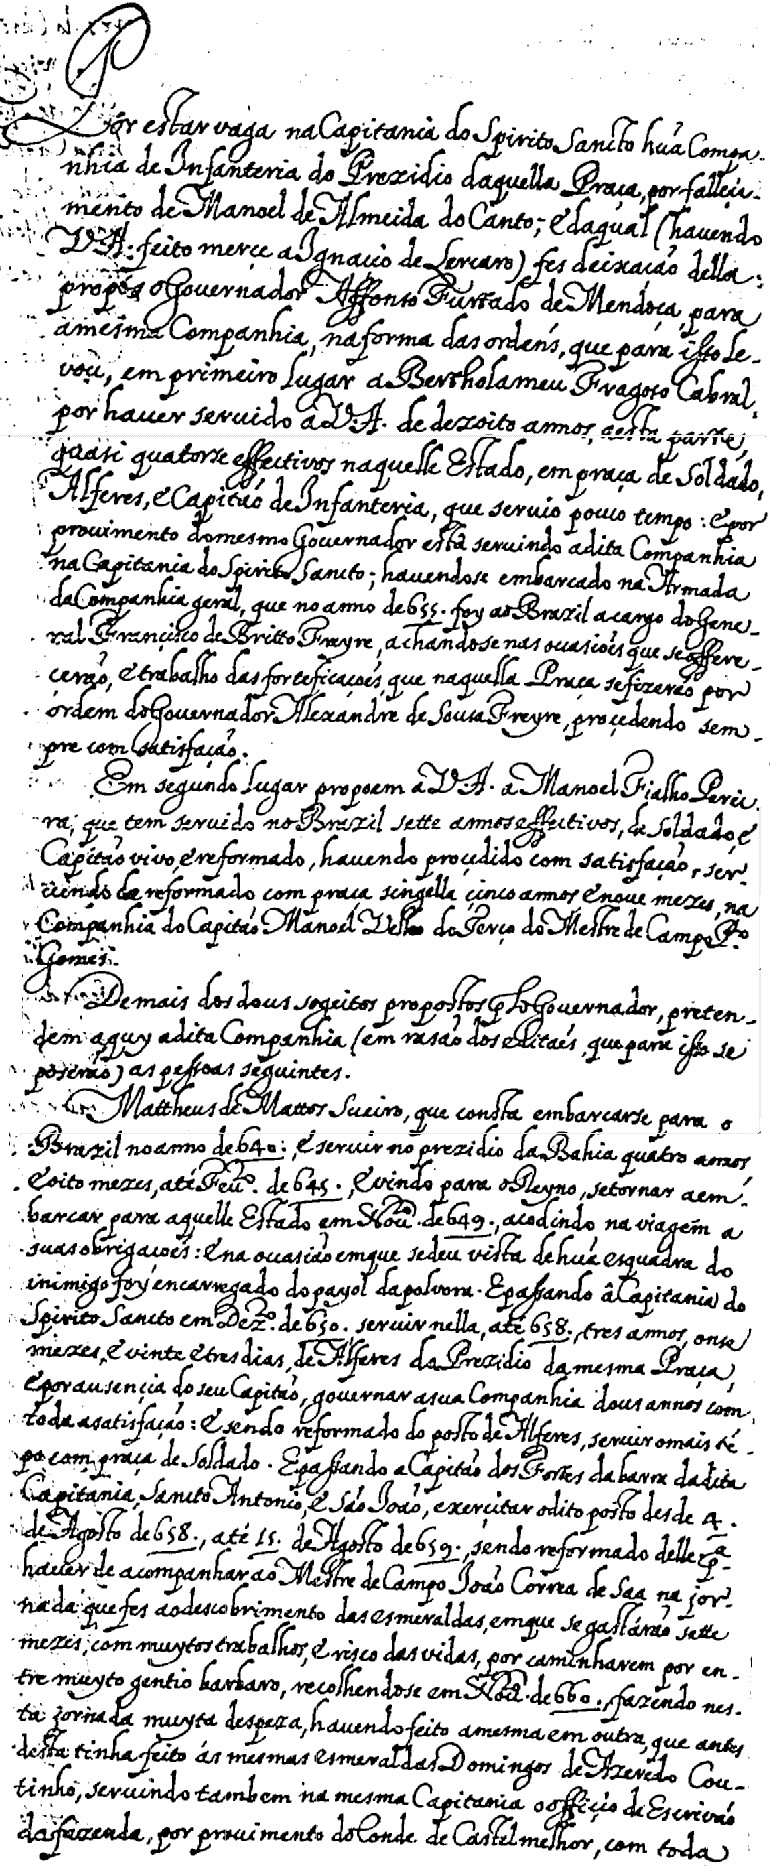 Por estar vaga na Capitania do Spirito Sancto huã Compa-
nhia de Infanteria do Prezidio daquella Praça, por falleçi-
mento de Manoel de Almeida do Canto; e da qual (havendo
V.A. feito merçe a Ignacio de Lercaro) fes deixação della:
propos o Governador Affonso Furtado de Mendoça, para
a mesma Companhia, na forma das ordens, que para isso le-
vou, em primeiro lugar a Bertholameu Fragoso Cabral,
por haver servido a V.A. de dezoito annos, aesta parte,
quasi quatorse effectivos naquelle Estado, em praça de Soldado,
Alferes, e Capitão de Infanteria, que servio pouco tempo: e por
provimento do mesmo Governador está servindo a dita Companhia
na Capitania do Spirito Sancto; havendose embarcado na Armada
da Companhia geral, que no anno de 655. foy ao Brazil a cargo do Gene-
ral Françisco de Britto Freyre, achandose nas ocasiões que se offere-
çerão, e trabalho das forteficações que naquella Praça se fizerão por
órdem do Governador Alexandre de Sousa Freyre, proçedendo sem-
pre com satisfação.
Em segundo lugar propoem a V.A. a Manoel Fialho Perei-
ra, que tem servido no Brazil sette annos effectivos, de Soldado, e
Capitão vivo, e reformado, havendo proçedido com satisfação, ser-
vindo de reformado com praça singella çinco annos e nove mezes, na
Companhia do Capitão Manoel Velho do Terço do Mestre de Campo P.º
Gomes.
Demais dos dous sogeitos propostos plo Governador, preten-
dem aquy a dita Companhia (em rasão dos editaes, que para isso se
poserão) as pessoas seguintes.
Mattheus de Mattos Sueiro, que consta embarcarse para o
Brazil no anno de 640., e servir no prezidio da Bahia quatro annos,
e oito mezes, até Feu.º de 645., e vindo para o Reyno, se tornar a em-
barcar para aquelle Estado em Nou.º de 649., acodindo na viagem a
suas obrigações: e na ocasião em que se deu vista de huã esquadra do
inimigo foy encarregado do payol da polvora. E passando â Capitania do
Spirito Sancto em Dez.º de 650. servir nella, até 658., tres annos, onse
mezes, e vinte e tres dias, de Alferes da Prezidio da mesma Praça,
e por ausencia do seu Capitão, governar a sua Companhia dous annos com
toda a satisfação: e sendo reformado do posto de Alferes, servir o mais tẽ-
po com praça de Soldado. E passando a Capitão dos Fortes da barra da dita
Capitania, Sancto Antonio, e São João, exerçitar o dito posto desde 4.
de Agosto de 658., até 15. de Agosto de 659., sendo reformado delle pª
haver de acompanhar ao Mestre de Campo João Correa de Saa na jor-
nada que fes ao descobrimento das esmeraldas, em que se gastárão sette
mezes, com muytos trabalhos, e risco das vidas, por caminharem por en-
tre muyto gentio barbaro, recolhendose em Nou.º de 660., fazendo nes-
ta jornada muyta despeza, havendo feito a mesma em outra, que antes
desta tinha feito ás mesmas esmeraldas Domingos de Azevedo Cou-
tinho, servindo tambem na mesma Capitania o offiçio de Escrivão
da fazenda, por provimento do Conde de Castelmelhor, com toda